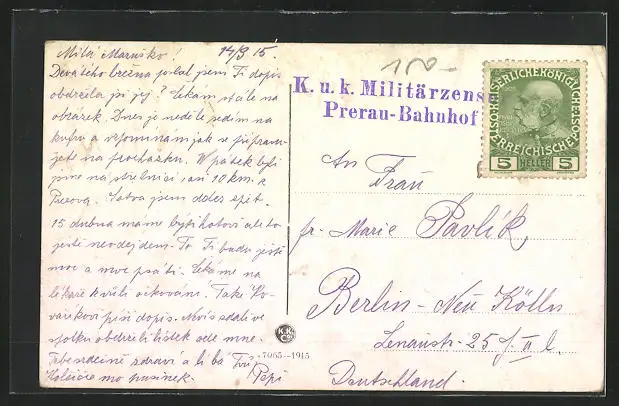 Milá Mařuško! 14/3 15.
Devátého března poslal jsem Ti dopis
obdržela jsi jej? Čekám stále na
obrázek. Dnes je neděle sedím na
kufru a vzpomínám jak se připravu-
jete na procházku. V pátek byli
jsme na střelnici asi 10 km. z
Přerova. Sotva jsem došel zpět.
15 dubna máme býti hotovi ale to
ještě neodejdem. To Ti budu ještě
moc a moc psáti. Čekáme na
lékaře kvůli očkování. Také
píši dopis.
spolku obdrželi lístek ode mne.
Tebe srdečně zdraví a líbá Tvůj
Pepi
K. u. k. Militärzens
Prerau-Bahnhof
5 HELLER 5
An Frau
fr. Marie Pavlík
Berlin-Neu Kölln
Lenaustr. 25 II l.
Deutschland.
K.K.
Co.
7065-1915